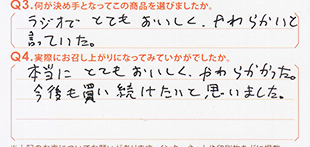 Q3.何が決め手となってこの商品を選びましたか。
ラジオで とても おいしく、やわらかいと
言っていた。
Q4.実際にお召し上がりになってみていかがでしたか。
本当に とても おいしく、やわらかかった。
今後も買い続けたいと思いました。